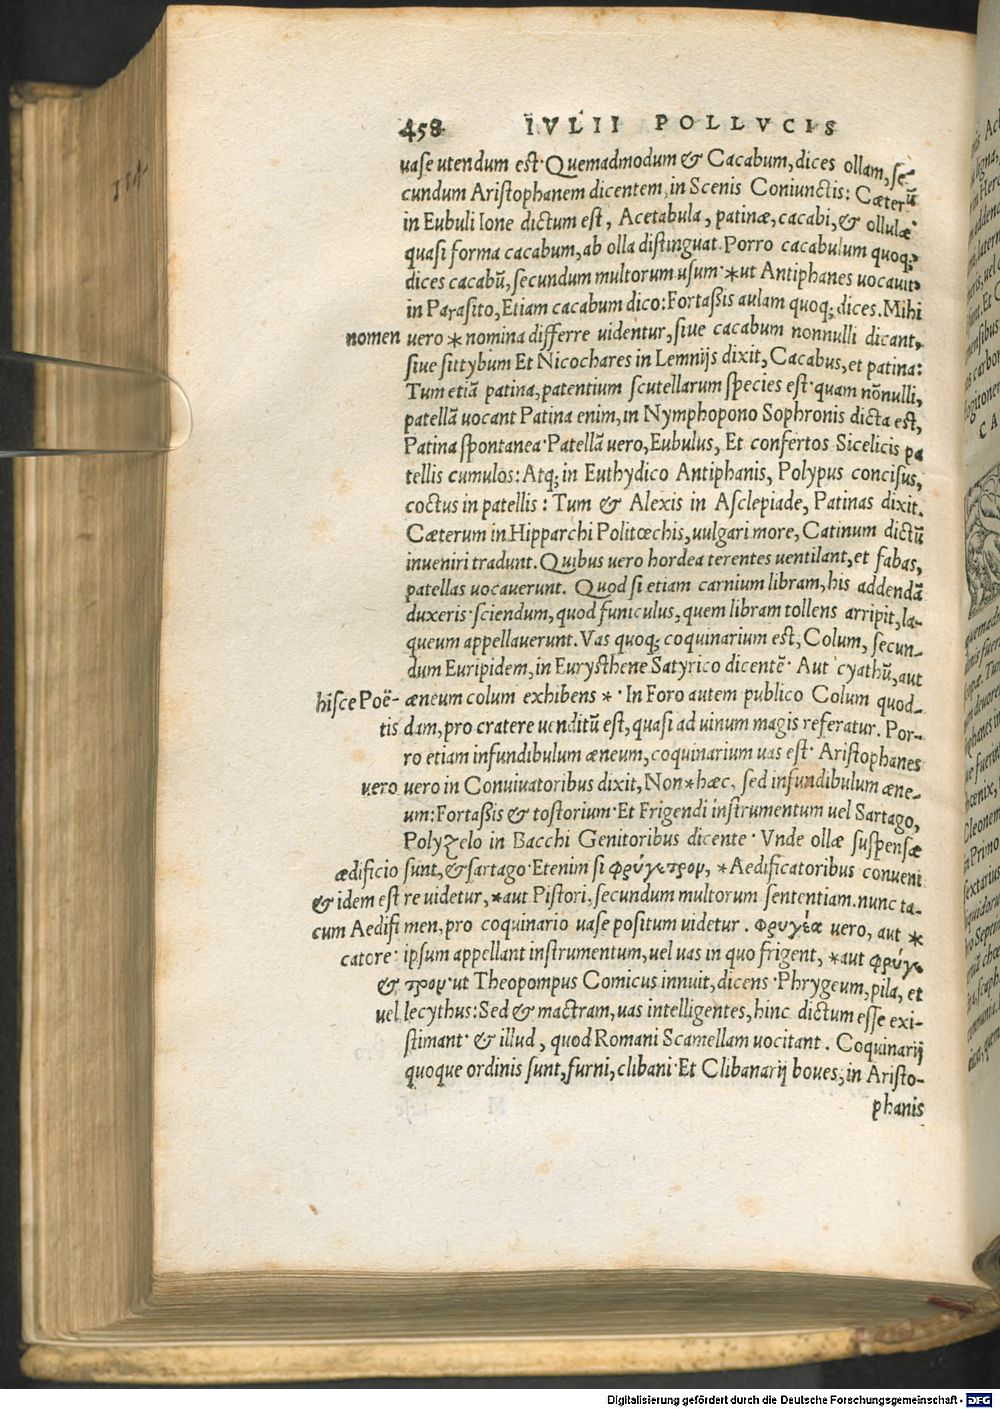 458 IVLII POLLVCIS
114
uase utendum est· Quemadmodum & Cacabum, dices ollam, se-
cundum Aristophanem dicentem, in Scenis Coniunctis: Cæterũ
in Eubuli Ione dictum est, Acetabula, patinæ, cacabi, & ollulæ
quasi forma cacabum, ab olla distinguat. Porro cacabulum quoq;
dices cacabũ, secundum multorum usum· *ut Antiphanes uocauit
in Parasito, Etiam cacabum dico: Fortaßis aulam quoq; dices. Mihi
nomen uero * nomina differre uidentur, siue cacabum nonnulli dicant,
siue sittybum Et Nicochares in Lemnijs dixit, Cacabus, et patina:
Tum etiã patina, patentium scutellarum species est· quam nõnulli,
patellã uocant Patina enim, in Nymphopono Sophronis dicta est,
Patina spontanea· Patellã uero, Eubulus, Et confertos Sicelicis pa
tellis cumulos: Atq; in Euthydico Antiphanis, Polypus concisus,
coctus in patellis: Tum & Alexis in Asclepiade, Patinas dixit.
Cæterum in Hipparchi Politœchis, uulgari more, Catinum dictũ
inueniri tradunt. Quibus uero hordea terentes uentilant, et fabas,
patellas uocauerunt. Quod si etiam carnium libram, his addendã
duxeris· sciendum, quod funiculus, quem libram tollens arripit, la-
queum appellauerunt. Vas quoq; coquinarium est, Colum, secun-
dum Euripidem, in Eurysthene Satyrico dicentẽ· Aut cyathũ, aut
hisce Poë- æneum colum exhibens *· In Foro autem publico Colum quod-
tis dam, pro cratere uenditũ est, quasi ad uinum magis referatur. Por-
ro etiam infundibulum æneum, coquinarium uas est· Aristophanes
uero uero in Conuiuatoribus dixit, Non * hæc, sed infundibulum æne-
um: Fortaßis & tostorium· Et Frigendi instrumentum uel Sartago,
Polyzelo in Bacchi Genitoribus dicente· Vnde ollæ suspensæ
ædificio sunt, & sartago· Etenim si φρύγετρον, *Aedificatoribus conueni
& idem est re uidetur, *aut Pistori, secundum multorum sententiam. nunc ta-
cum Aedifi men, pro coquinario uase positum uidetur. Φρυγέα uero, aut *
catore· ipsum appellant instrumentum, uel uas in quo frigent, *aut φρύγε
& τρον· ut Theopompus Comicus innuit, dicens· Phrygeum, pila, et
uel lecythus: Sed & mactram, uas intelligentes, hinc dictum esse exi-
stimant· & illud, quod Romani Scamellam uocitant. Coquinarij
quoque ordinis sunt, furni, clibani· Et Clibanarij boues, in Aristo-
phanis
Digitalisierung gefördert durch die Deutsche Forschungsgemeinschaft - DFG